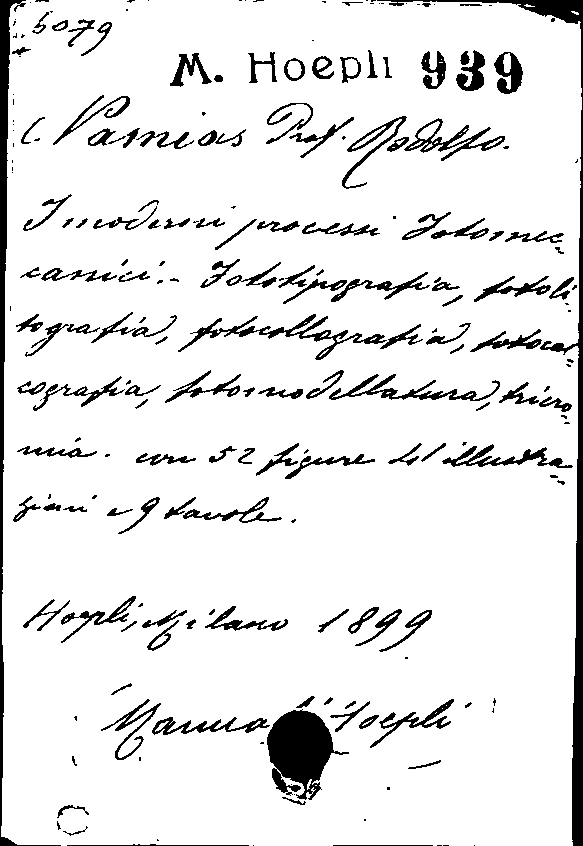 5079
M. Hoepli 939
Namias Prof. Rodolfo.
I moderni processi Fotomec-
canici.- Fototipografia, fotoli-
tografia, fotocollografia, fotocal-
cografia, fotomodellatura, tricro-
mia. con 52 figure ed illustra-
zioni e 9 tavole.
Hoepli, Milano 1899
Manuali Hoepli